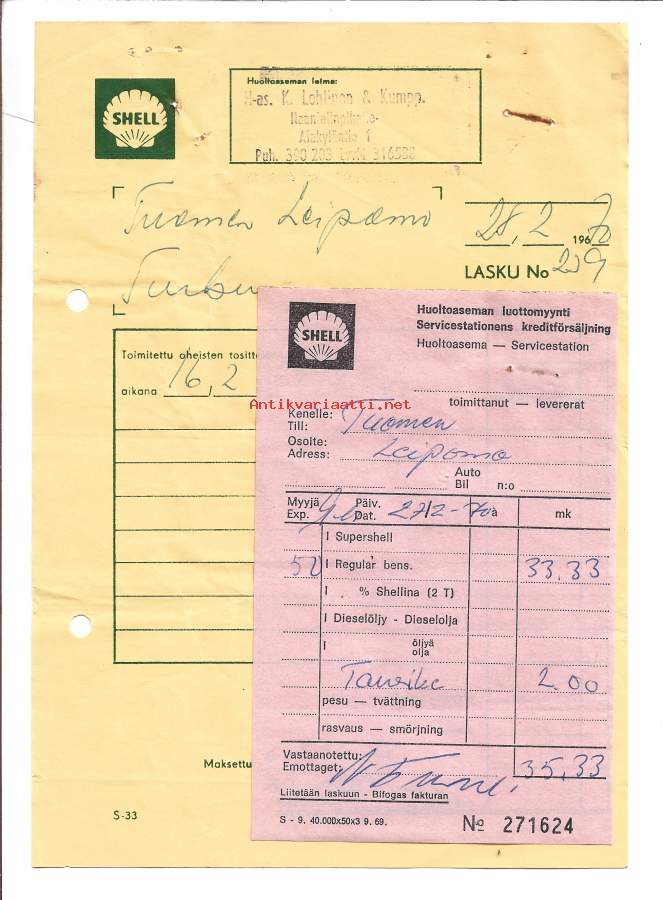 SHELL
Huoltoaseman leima:
H-as. K. Lehtinen & Kumpp.
Alakyläntie 1
Puh. 390 203
Tuomen Leipomo
28, 2 1970
LASKU No 239
Turku
Toimitettu oheisten
aikana 16,2
Maksettu
S-33
SHELL
Huoltoaseman luottomyynti
Servicestationens kreditförsäljning
Huoltoasema — Servicestation
toimittanut — levererat
Antikvariaatti.net
Kenelle:
Till: Tuomen
Osoite:
Adress: Leipomo
Auto
Bil n:o
Myyjä Päiv.
Exp. Dat. 27/2-70 à mk
l Supershell
50 l Regular bens. 33.33
l % Shellina (2 T)
l Dieselöljy - Dieselolja
l öljyä
olja
Tarvike 2.00
pesu — tvättning
rasvaus — smörjning
Vastaanotettu:
Emottaget: 35,33
Liitetään laskuun - Bifogas fakturan
S - 9. 40.000x50x3 9. 69.
No 271624